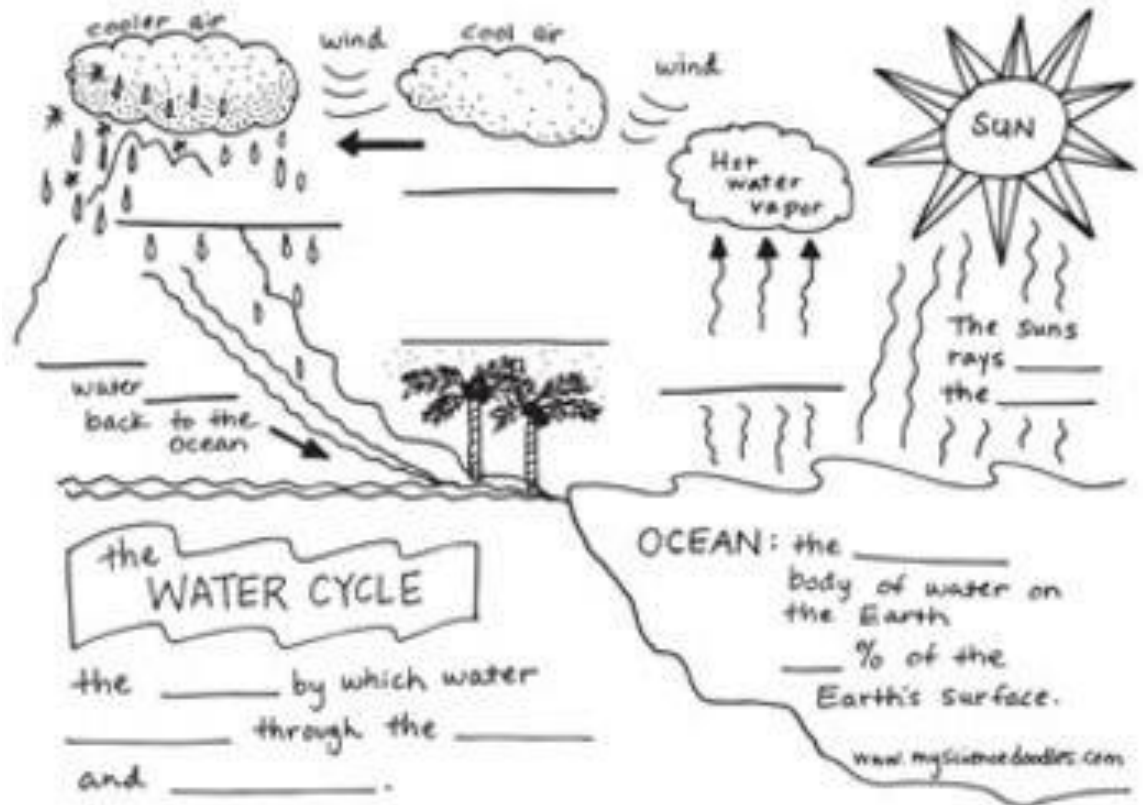 cooler air
wind
cool air
wind
SUN
Hot
water
vapor
The suns
rays ______
the ______
______
water ______
back to the
ocean
the
WATER CYCLE
the ______ by which water
______ through the ______
and ______.
OCEAN: the ______
body of water on
the Earth
___ % of the
Earth's surface.
www.mysciencedoodles.com